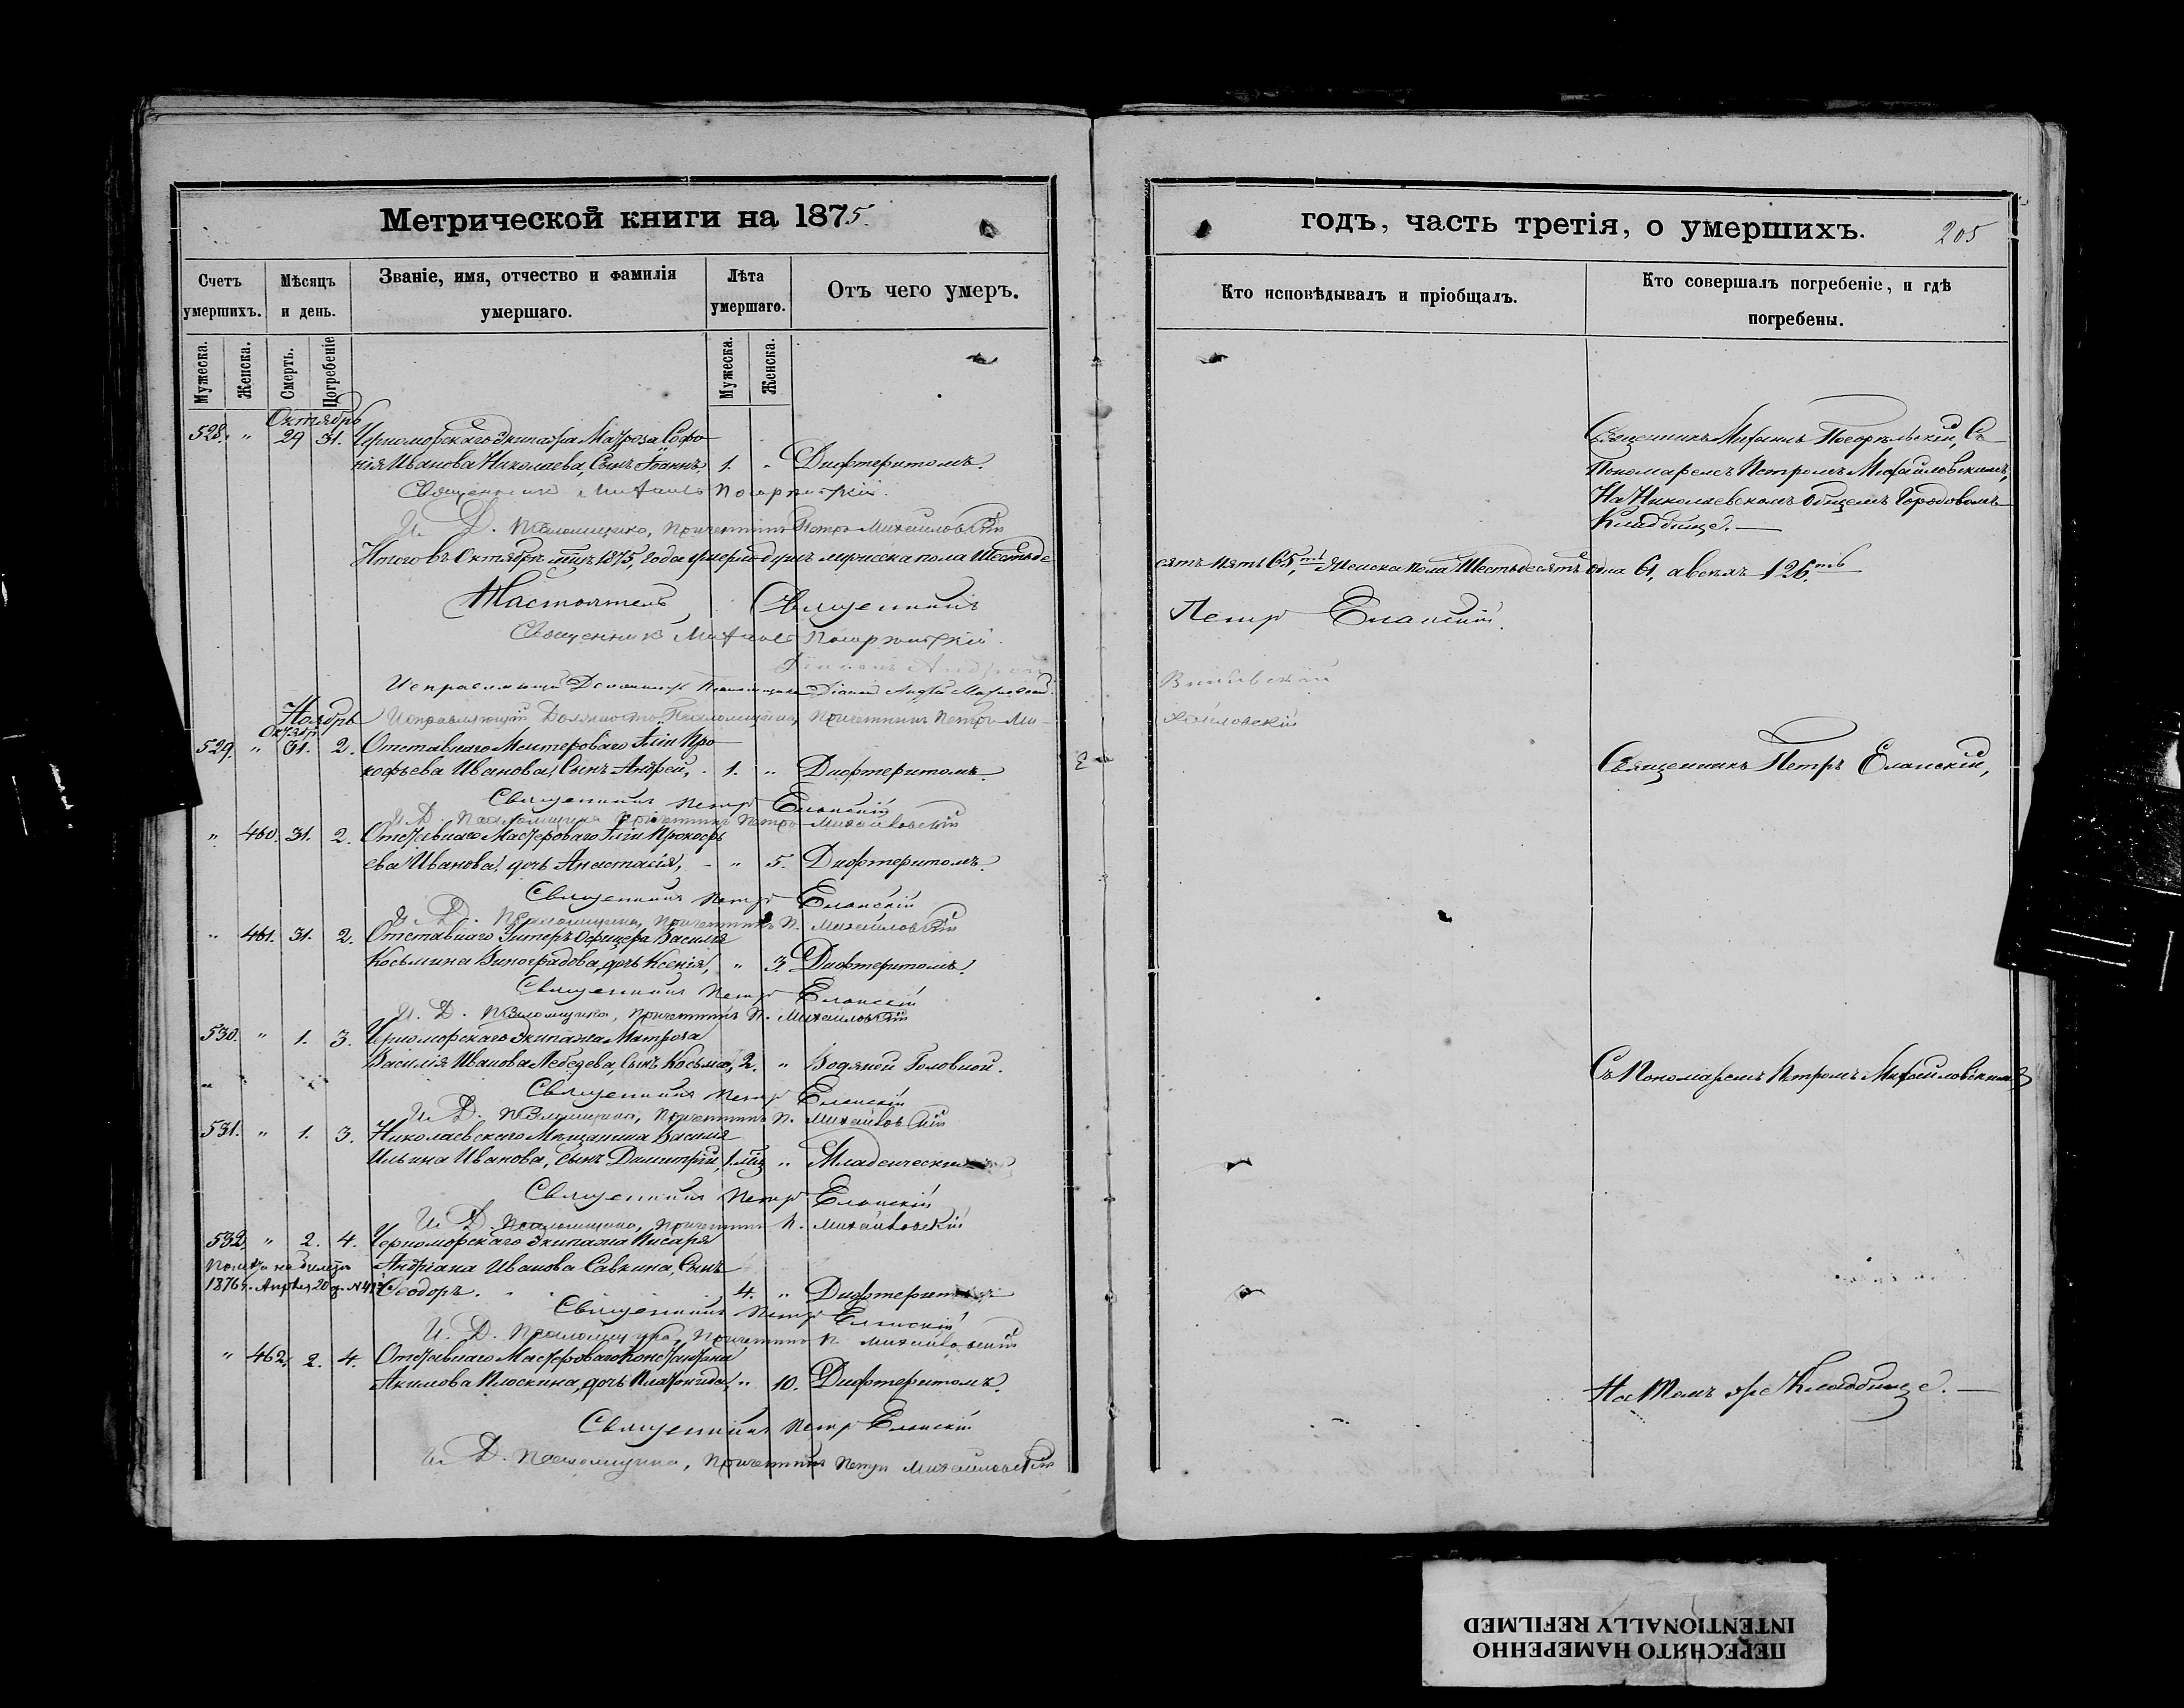 Метрической книги на 1875.
Счетъ умершихъ.
Мѣсяцъ и день.
Званіе, имя, отчество и фамилія умершаго.
Лѣта умершаго.
Отъ чего умеръ.
Мужеска.
Женска.
Смерть.
Погребеніе
Мужеска.
Женска.
Октябрь
528. " 29 31. Черноморскаго Экипажа Матроза Софо-
нія Иванова Николаева, Сынъ Іоаннъ, 1. " Дифтеритомъ.
Священникъ Михаилъ
И. Д. Псаломщика, Причетникъ Петръ Михайловскій
Итого въ Октябрѣ мцѣ 1875, года умерло душъ мужеска пола Шестьде
Настоятель Священникъ
Священникъ Михаилъ
Исправляющій Должность Псаломщика Діаконъ Андрей
Ноябрь Исправляющій Должность Псаломщика, Причетникъ Петръ Ми-
Октябр
529. " 31. 2. Отставнаго Мастероваго Іліи Про-
кофьева Иванова, Сынъ Андрей, 1. " Дифтеритомъ.
Священникъ Петръ Еланскій
И. Д. Псаломщика Причетникъ Петръ Михайловскій
" 460. 31. 2. Отставнаго Мастероваго Іліи Прокофь
ева Иванова, дочь Анастасія, " 5. Дифтеритомъ.
Священникъ Петръ Еланскій
И. Д. Псаломщика, Причетникъ П. Михайловскій
" 461. 31. 2. Отставнаго Унтеръ Офицера Василія
Косьмина Виноградова, дочь Ксенія, " 3. Дифтеритомъ.
Священникъ Петръ Еланскій
И. Д. Псаломщика, Причетникъ П. Михайловскій
530. " 1. 3. Черноморскаго Экипажа Матроза
Василія Иванова Лебедева, Сынъ Косьма, 2. " Водяной Головной.
Священникъ Петръ Еланскій
И. Д. Псаломщика, Причетникъ П. Михайловскій
531. " 1. 3. Николаевскаго Мѣщанина Василія
Ильина Иванова, Сынъ Димитрій, 1. мц " Младенческимъ
Священникъ Петръ Еланскій
И. Д. Псаломщика, Причетникъ П. Михайловскій
532. " 2. 4. Черноморскаго Экипажа Писаря
Андріана Иванова Савкина, Сынъ
1876 г. Апрѣля 20 д. Ѳеодоръ. 4. " Дифтеритомъ
Священникъ Петръ Еланскій
И. Д. Псаломщика, Причетникъ П. Михайловскій
" 462. 2. 4. Отставнаго Мастероваго Константина
Акимова Плоскина, дочь Платонида, " 10. Дифтеритомъ.
Священникъ Петръ Еланскій
И. Д. Псаломщика, Причетникъ Петръ Михайловскій
годъ, часть третія, о умершихъ.
205
Кто исповѣдывалъ и пріобщалъ.
Кто совершалъ погребеніе, и гдѣ погребены.
Священникъ Михаилъ Съ
Пономаремъ Петромъ Михайловскимъ,
На Николаевскомъ Общемъ Городовомъ
Кладбище.
сятъ пять 65, Женска пола Шестьдесятъ одна 61, а всѣхъ 126.
Петръ Еланскій
хайловскій
Священникъ Петръ Еланскій,
Съ Пономаремъ Петромъ Михайловскимъ
На томъ же Кладбище.
ПЕРЕСНЯТО НАМЕРЕННО
INTENTIONALLY REFILMED